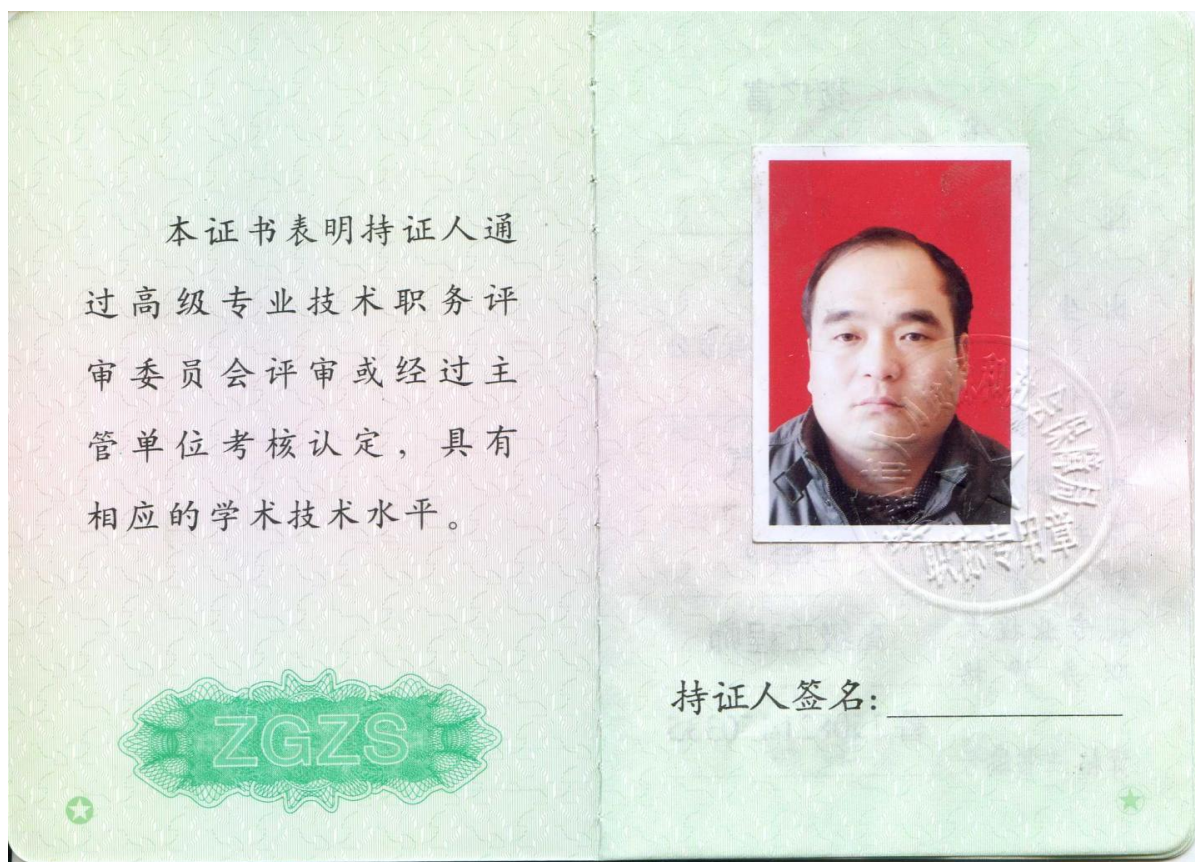 本证书表明持证人通
过高级专业技术职务评
审委员会评审或经过主
管单位考核认定，具有
相应的学术技术水平。
ZGZS
会保障局
专用章
持证人签名: